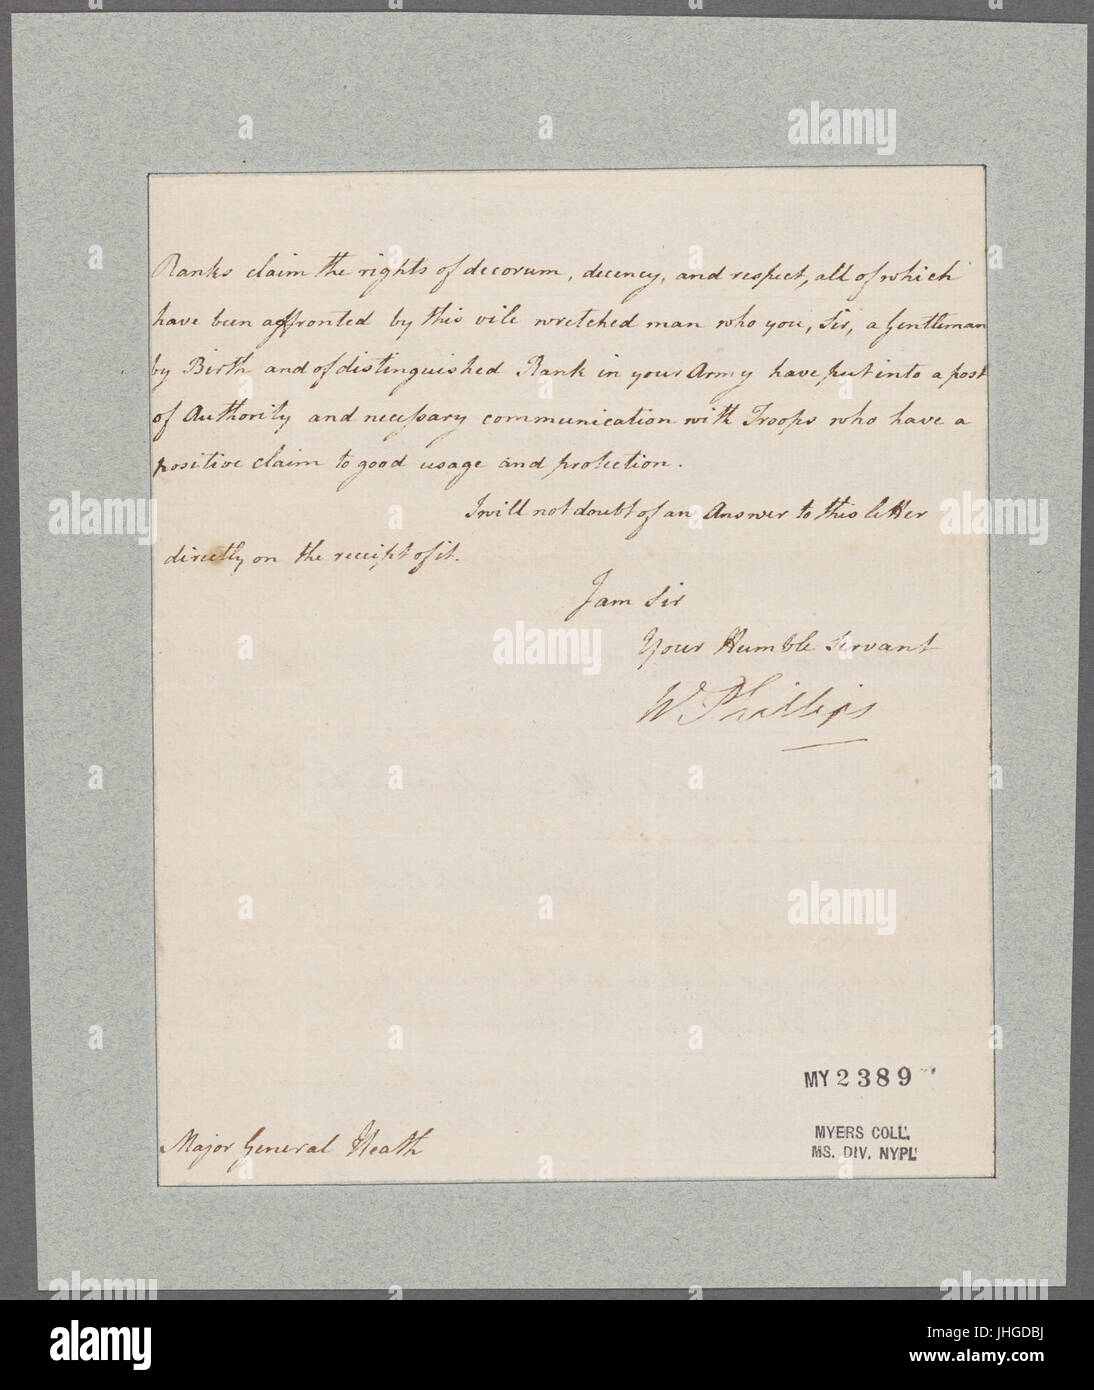 Ranks claim the rights of decorum, decency, and respect, all of which
have been affronted by this vile wretched man who you, Sir, a Gentleman
by Birth and of distinguished Rank in your Army have put into a post
of Authority and necessary communication with Troops who have a
positive claim to good usage and protection.
I will not doubt of an Answer to this letter
directly on the receipt of it.
I am Sir
Your Humble Servant
W. Phillips
MY 2389
Major General Heath
MYERS COLL.
MS. DIV. NYPL
alamy
Image ID: JHGDBJ
www.alamy.com